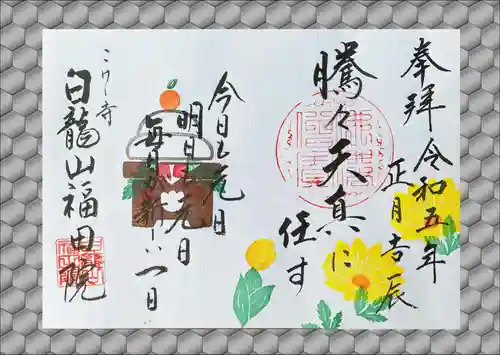 奉拝 令和五年
正月吉辰
騰々天真に
任す
今日も元日
明日も元日
毎日が新しい一日
こけし寺
白龍山福田院